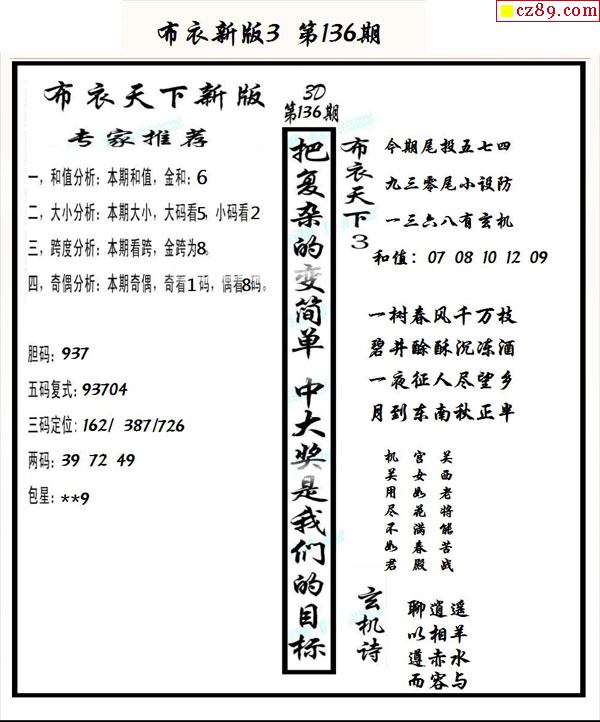 cz89.com
布衣新版3 第136期
布衣天下新版
专家推荐
一，和值分析：本期和值，金和：6
二，大小分析：本期大小，大码看5，小码看2
三，跨度分析：本期看跨，金跨为8。
四，奇偶分析：本期奇偶，奇看1码，偶看8码。
胆码：937
五码复式：93704
三码定位：162/ 387/726
两码：39 72 49
包星：**9
3D
第136期
把复杂的变简单 中大奖是我们的目标
布衣天下3
今期尾投五七四
九三零尾小设防
一三六八有玄机
和值：07 08 10 12 09
一树春风千万枝
碧井酴酥沉冻酒
一夜征人尽望乡
月到东南秋正半
关西老将能苦战
宫女如花满春殿
机关用尽不如君
玄机诗
聊逍遥
以相羊
遵赤水
而容与